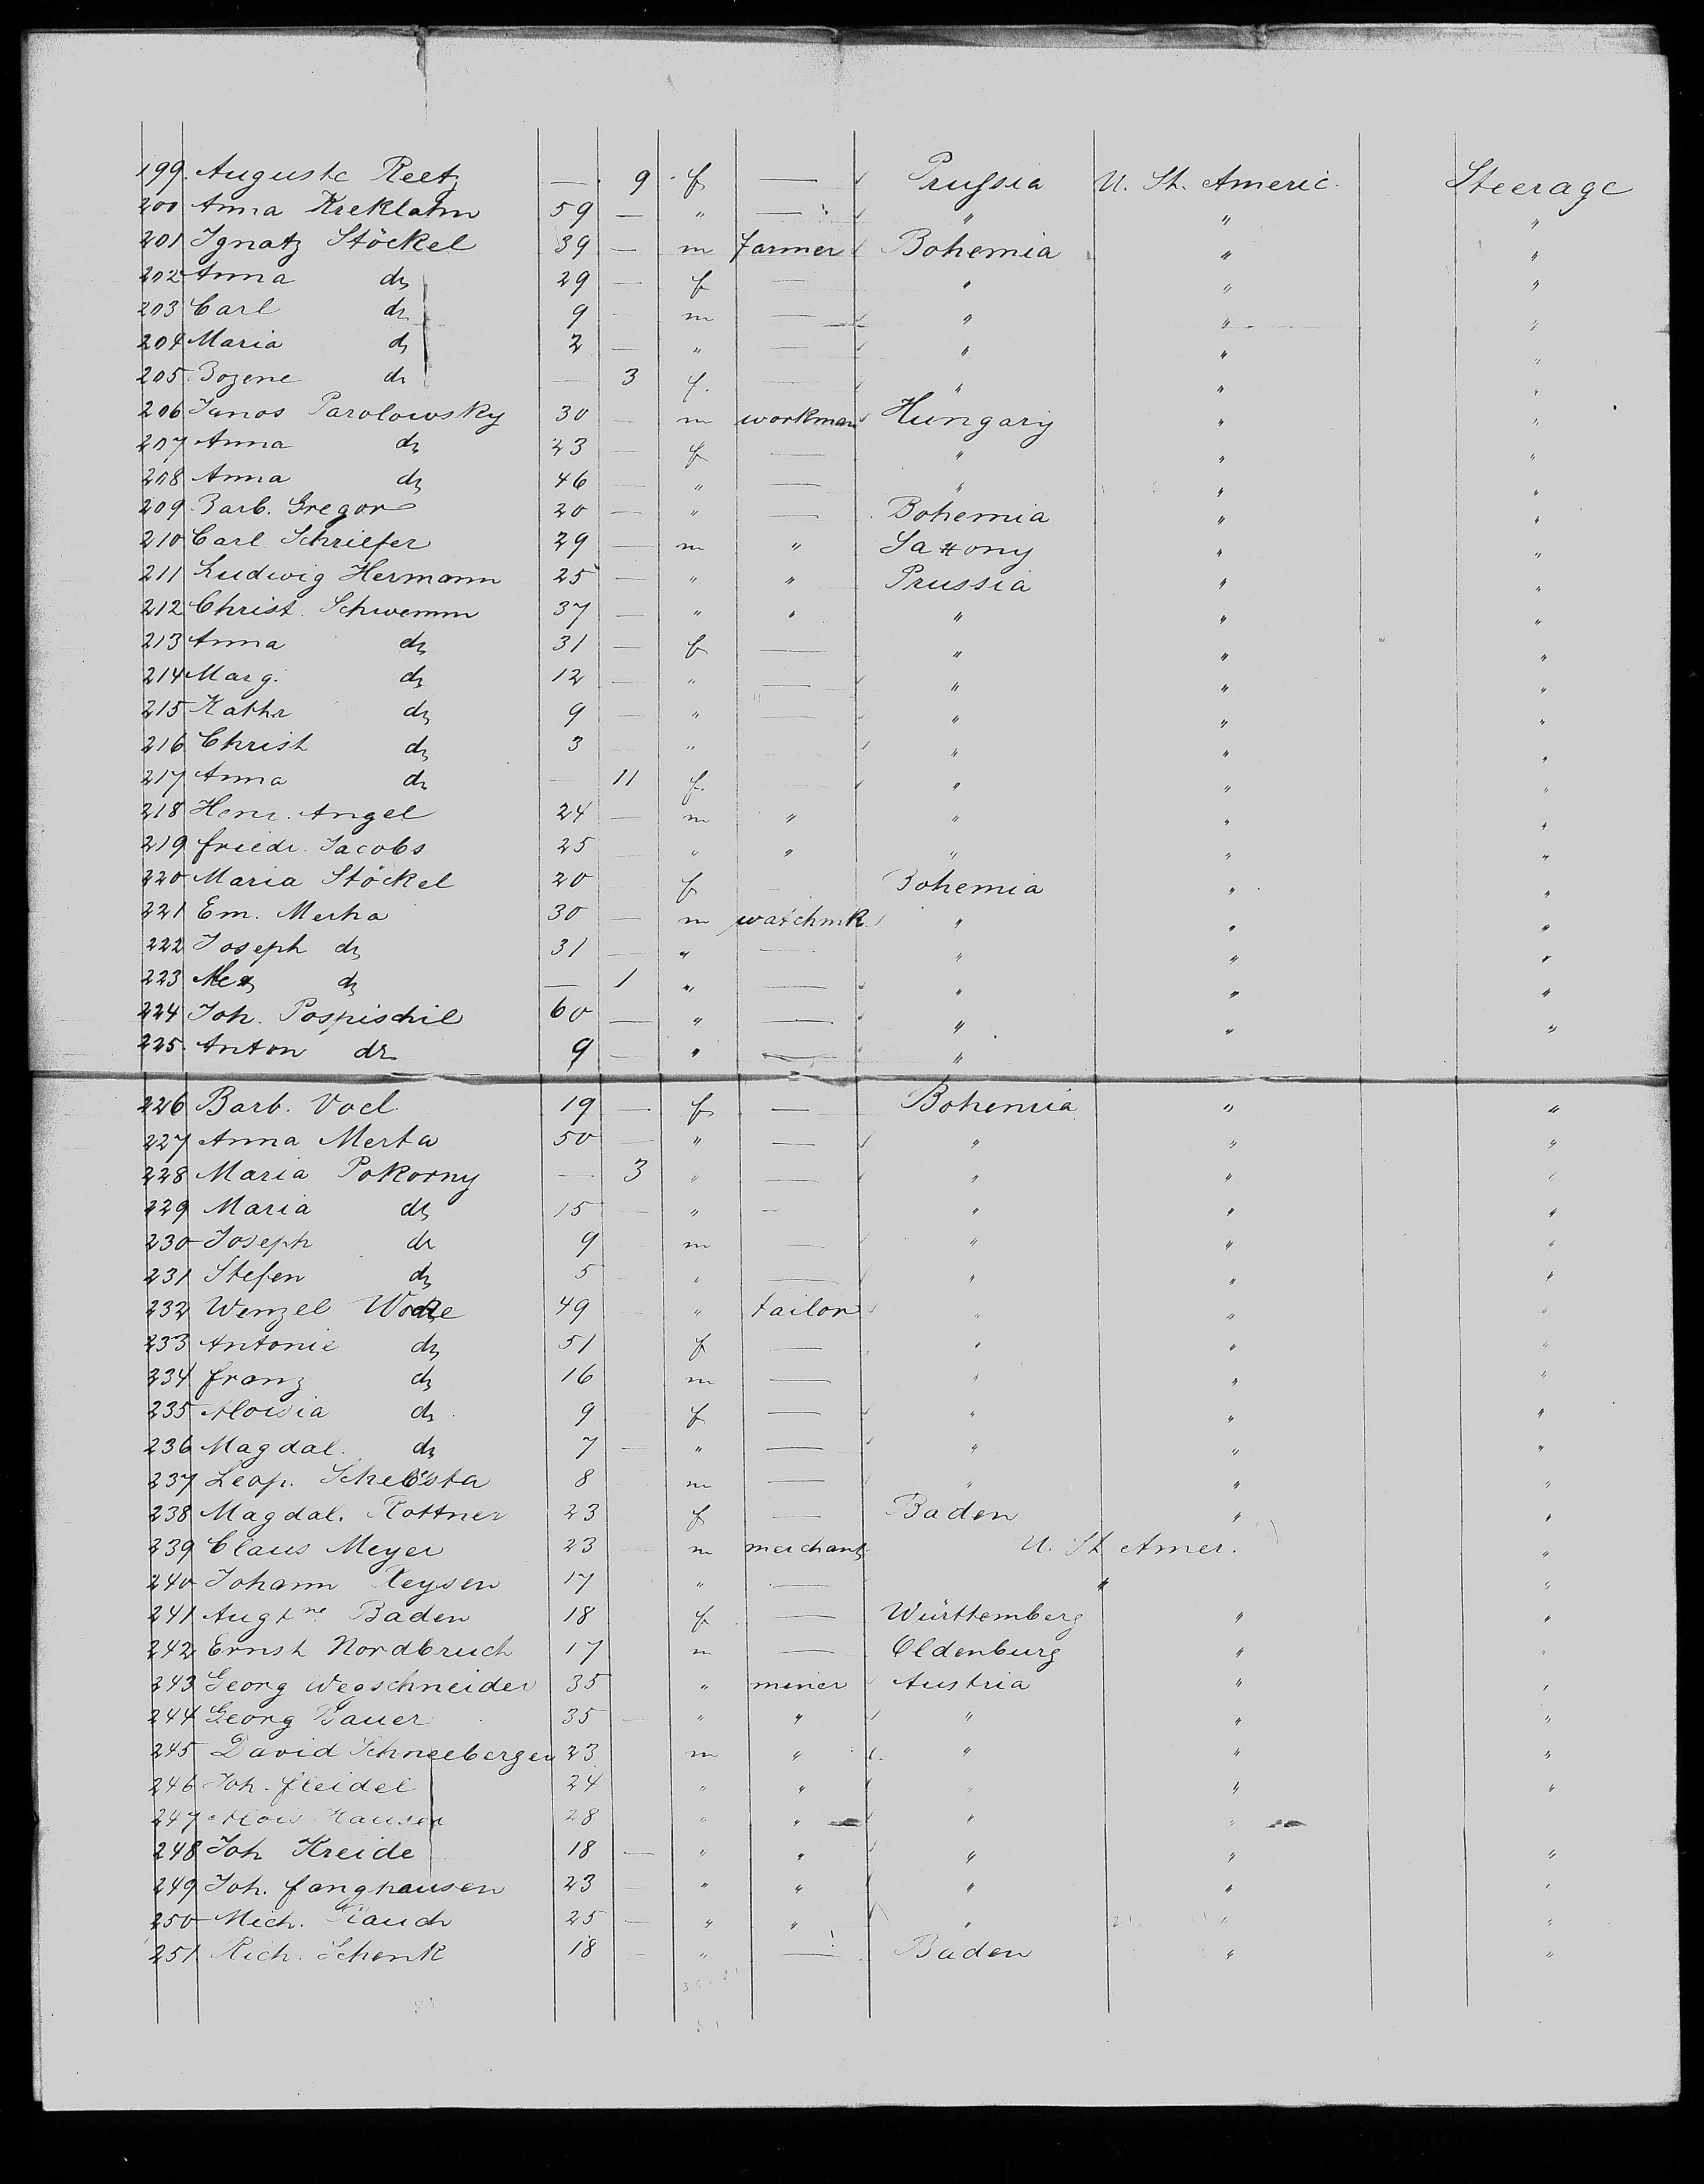 199. Auguste Reetz — 9 f — Prussia U. St. Americ. Steerage
200 Anna Kreklahn 59 — " — " " "
201 Ignatz Stöckel 39 — m farmer Bohemia " "
202 Anna do 29 — f — " " "
203 Carl do 9 — m — " " "
204 Maria do 2 — " — " " "
205 Bozene do — 3 f. — " " "
206 Janos Parolowsky 30 — m workman Hungary " "
207 Anna do 23 — f — " " "
208 Anna do 46 — " — " " "
209 Barb. Gregor 20 — " — Bohemia " "
210 Carl Schriefer 29 — m " Saxony " "
211 Ludwig Hermann 25 — " " Prussia " "
212 Christ. Schwemm 37 — " " " " "
213 Anna do 31 — f — " " "
214 Marg. do 12 — " — " " "
215 Kathr do 9 — " — " " "
216 Christ do 3 — " " " "
217 Anna do — 11 f. " " "
218 Henr. Angel 24 — m " " " "
219 Friedr. Jacobs 25 — " " " " "
220 Maria Stöckel 20 f — Bohemia " "
221 Em. Merta 30 — m watchmk. " " "
222 Joseph do 31 — " — " " "
223 do — 1 " — " " "
224 Joh. Pospischil 60 — " — " " "
225. Anton do 9 — " — "
226 Barb. Vocl 19 — f — Bohemia " "
227 Anna Merta 50 — " — " " "
228 Maria Pokorny — 3 " — " " "
229 Maria do 15 — " — " " "
230 Joseph do 9 m — " " "
231 Stefen do 5 " — " " "
232 Wenzel 49 " tailor " " "
233 Antonie do 51 f — " " "
234 Franz do 16 m — " " "
235 Aloisia do 9 f — " " "
236 Magdal. do 7 — " — " " "
237 Leop. Schebesta 8 m — " " "
238 Magdal. Rottner 23 f — Baden " "
239 Claus Meyer 23 m merchant U. St. Amer. "
240 Johann 17 " — " "
241 Augtne Baden 18 f — Württemberg " "
242 Ernst Nordbruch 17 m — Oldenburg " "
243 Georg Wegschneider 35 " miner Austria " "
244 Georg Bauer 35 — " " " " "
245 David Schneeberger 23 m " " " "
246 Joh. Fleidel 24 " " " " "
247 Alois Hauser 28 " " " "
248 Joh Kreide 18 — " " " " "
249 Joh. Fanghausen 23 — " " " " "
250 Mich. Rauch 25 — " " " " "
251 Rich. Schenk 18 — " — Baden " "